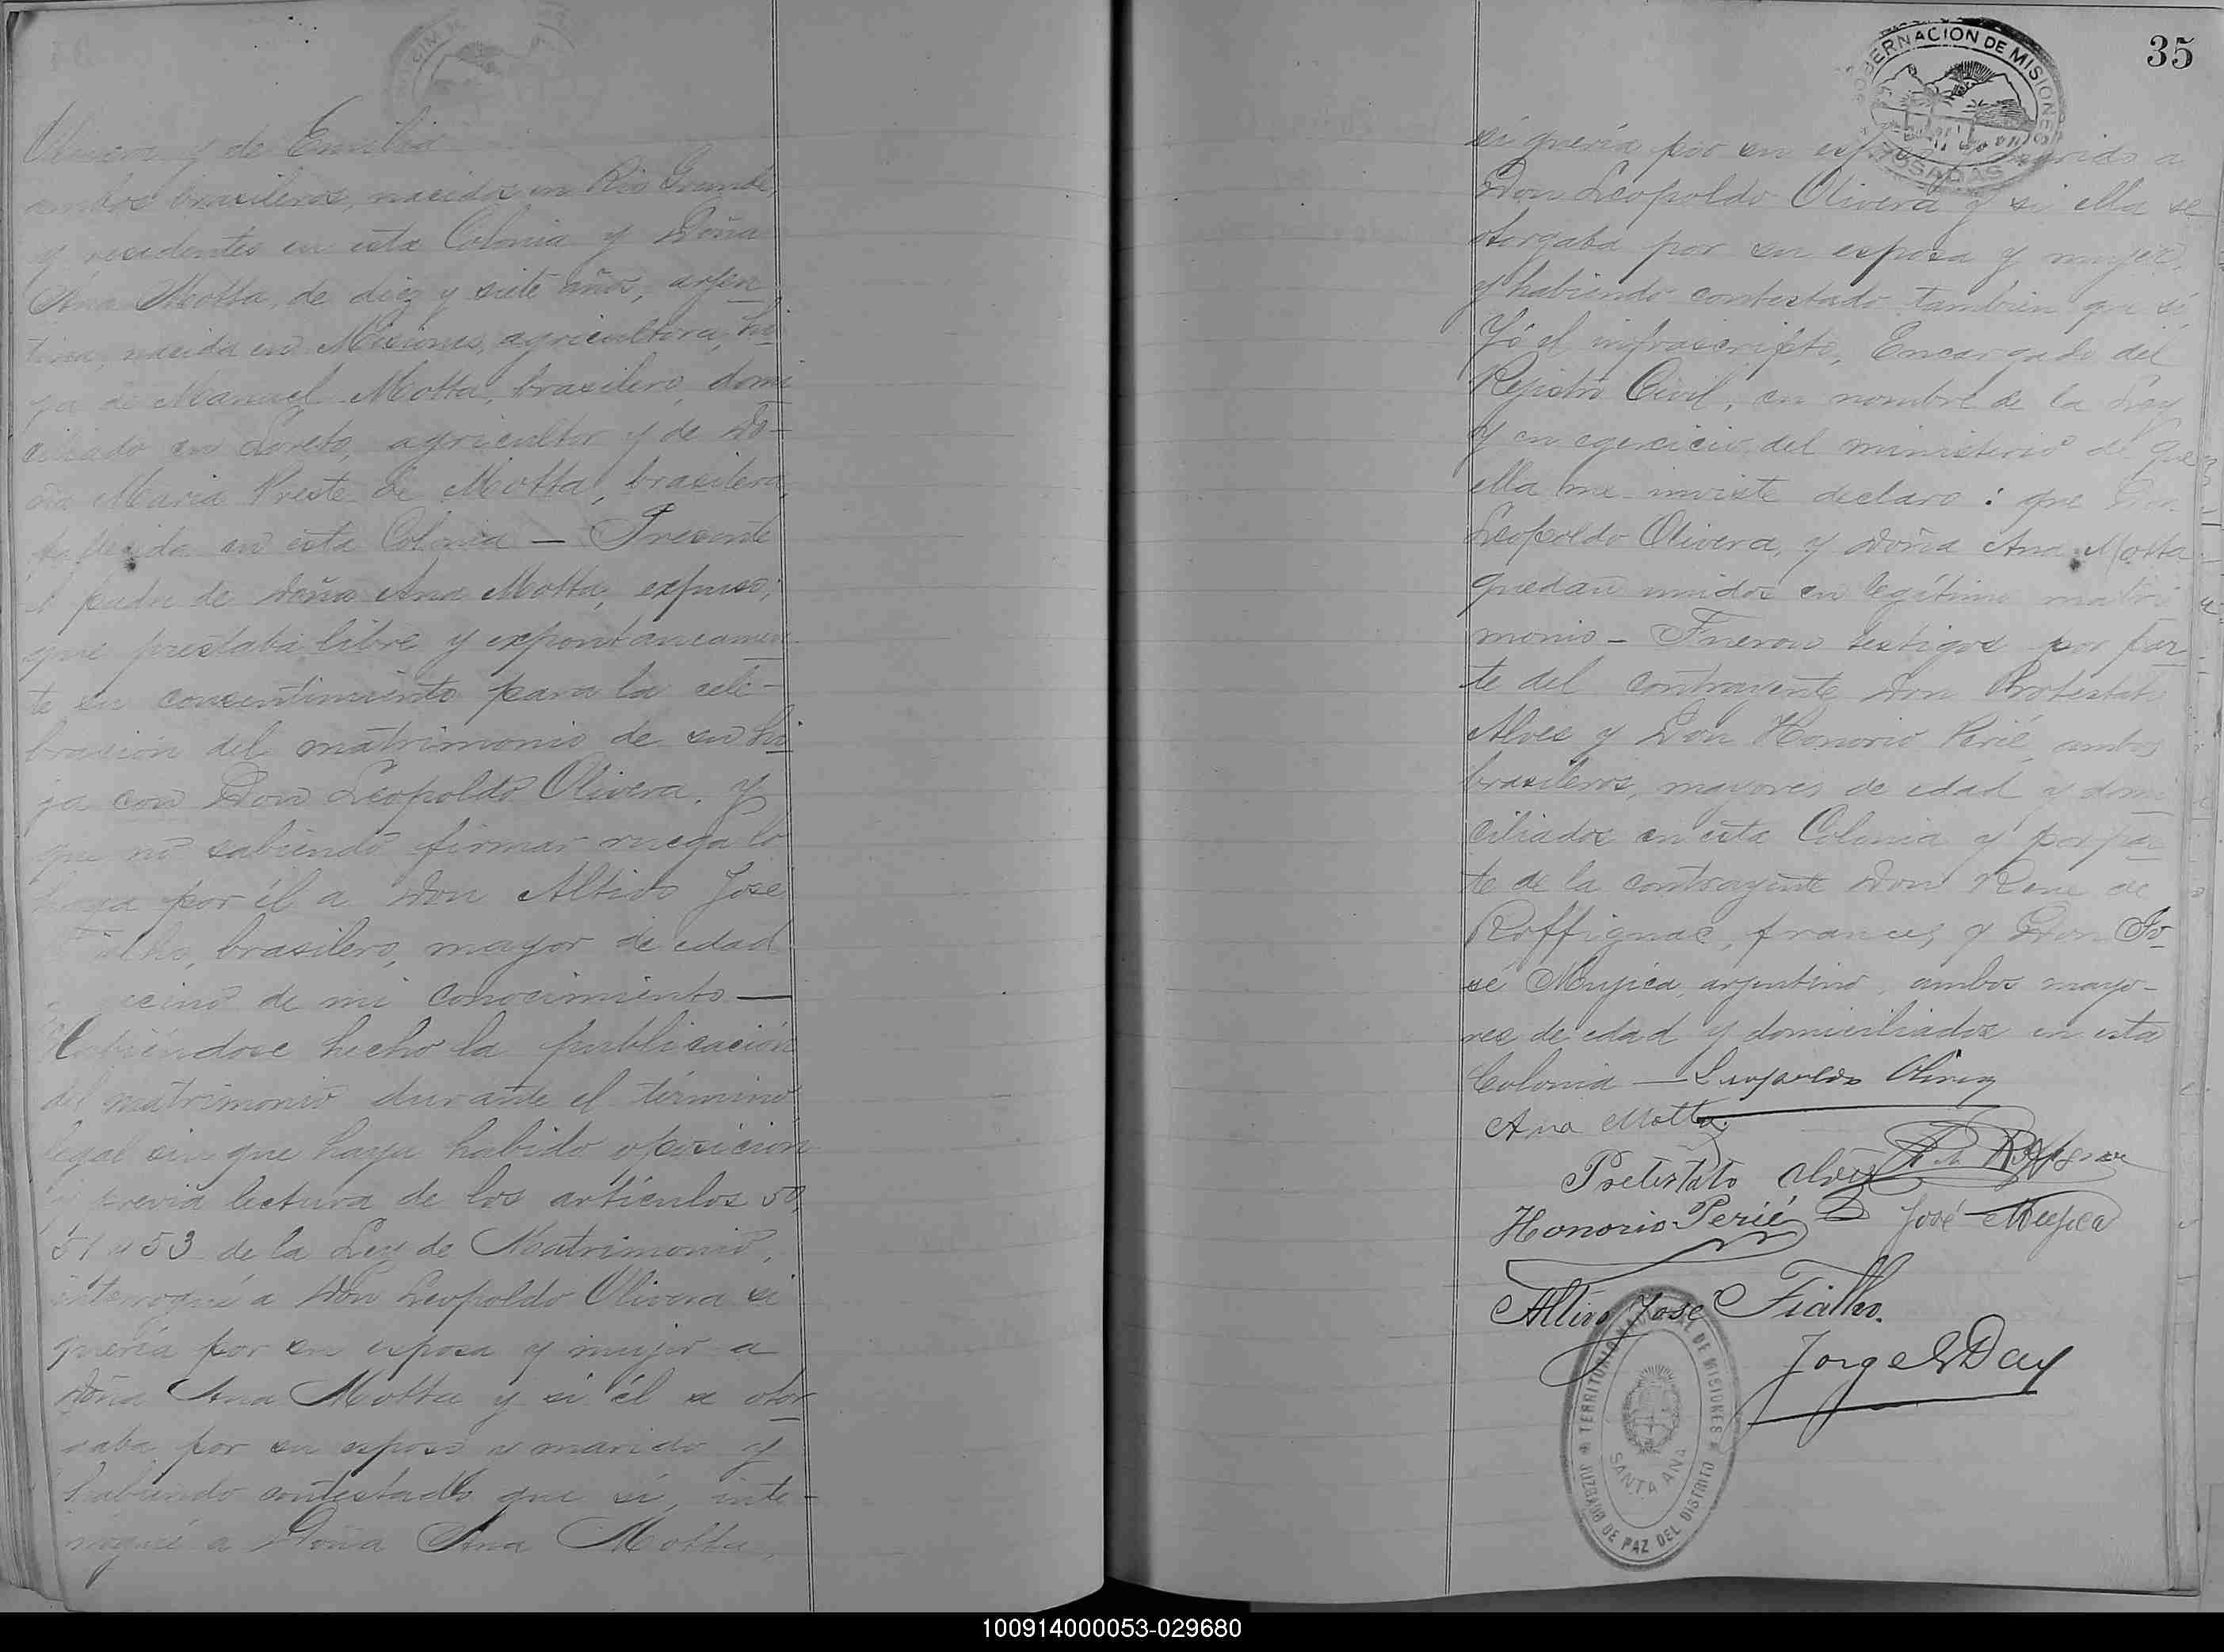 Olivera y de Emilia
ambos brasileros, nacidos en Rio Grande,
y residentes en esta Colonia y Doña
Ana Motta, de diez y siete años, arjen
tina, nacida en Misiones, agricultora, hi
ja de Manuel Motta, brasilero, domi
ciliado en Loreto, agricultor y de Do-
ña Maria Preste de Motta, brasilera,
fallecida en esta Colonia — Presente
el padre de Doña Ana Motta, expuso;
que prestaba libre y expontaneamen-
te su consentimiento para la cele-
bración del matrimonio de su hi
ja con Don Leopoldo Olivera, y
que no sabiendo firmar ruega lo
haga por él a Don Altivo José
Fialho, brasilero, mayor de edad
vecino de mi conocimiento —
Habiéndose hecho la publicación
del matrimonio durante el término
legal sin que haya habido oposición
previa lectura de los artículos 50,
51 y 53 de la Ley de Matrimonio,
interrogué a Don Leopoldo Olivera si
quería por su esposa y mujer a
Doña Ana Motta y si él se otor
gaba por su esposo y marido y
habiendo contestado que sí, inte-
rrogué a Doña Ana Motta,
35
GOBERNACION DE MISIONES
POSADAS
si quería por su esposo y marido a
Don Leopoldo Olivera y si ella se
otorgaba por su esposa y mujer,
y habiendo contestado tambien que sí
Yó el infrascripto, Encargado del
Rejistro Civil, en nombre de la Ley
y en egercicio del ministerio de que
ella me inviste declaro: que Don
Leopoldo Olivera, y Doña Ana Motta
quedan unidos en legítimo matri
monio - Fueron testigos por par
te del contrayente Don Protestato
Alves y Don Honorio Perié, ambos
brasileros, mayores de edad y domi
ciliados en esta Colonia y por par
te de la contrayente Don Rene de
Roffignac, frances, y Don Jo-
sé Mujica, argentino, ambos mayo-
res de edad y domiciliados en esta
Colonia — Leopoldo Olivera
Ana Motta
Pretestato Alves R de Roffignac
Honorio Perié José Mujica
Altivo José Fialho.
Jorge Day
TERRITORIO NACIONAL DE MISIONES
JUZGADO DE PAZ DEL DISTRITO
SANTA ANA
100914000053-029680